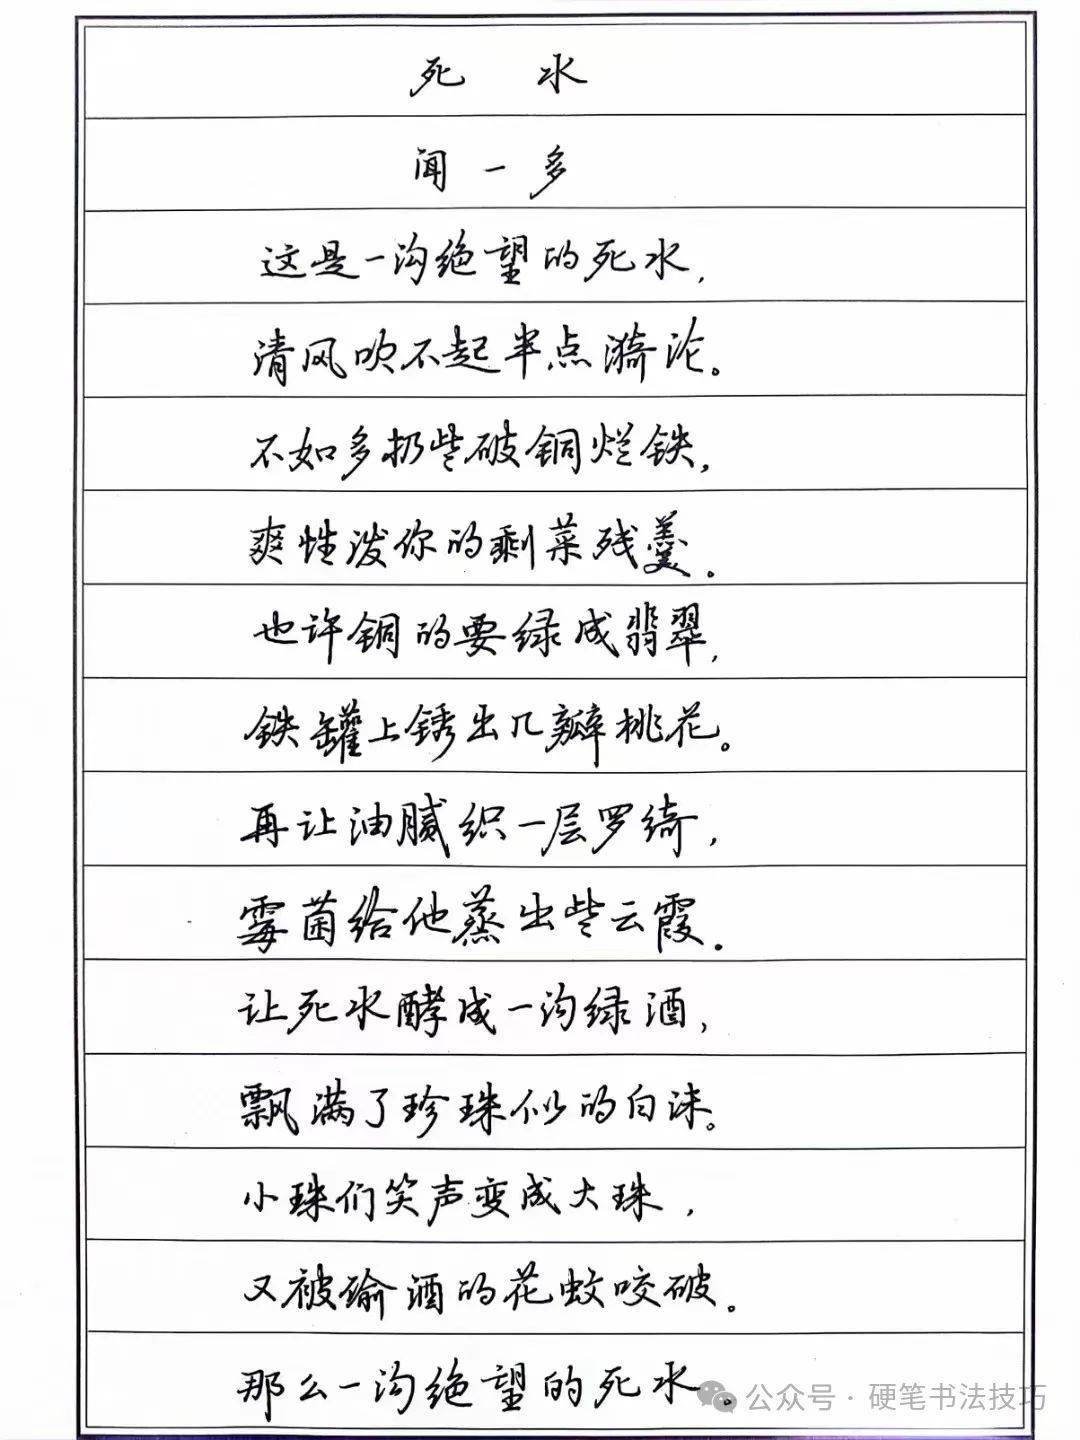 死水
闻一多
这是一沟绝望的死水,
清风吹不起半点漪沦。
不如多扔些破铜烂铁,
爽性泼你的剩菜残羹。
也许铜的要绿成翡翠,
铁罐上锈出几瓣桃花。
再让油腻织一层罗绮,
霉菌给他蒸出些云霞。
让死水酵成一沟绿酒,
飘满了珍珠似的白沫。
小珠们笑声变成大珠,
又被偷酒的花蚊咬破。
那么一沟绝望的死水。
公众号·硬笔书法技巧